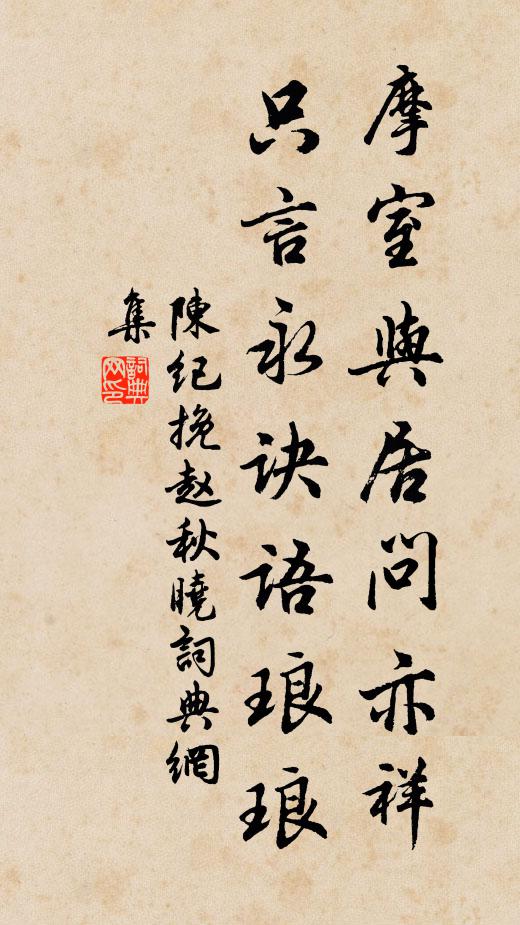 摩室與居問亦祥
只言永訣語琅琅
陳紀挽赵秋曉詞典網
集
詞典
网印